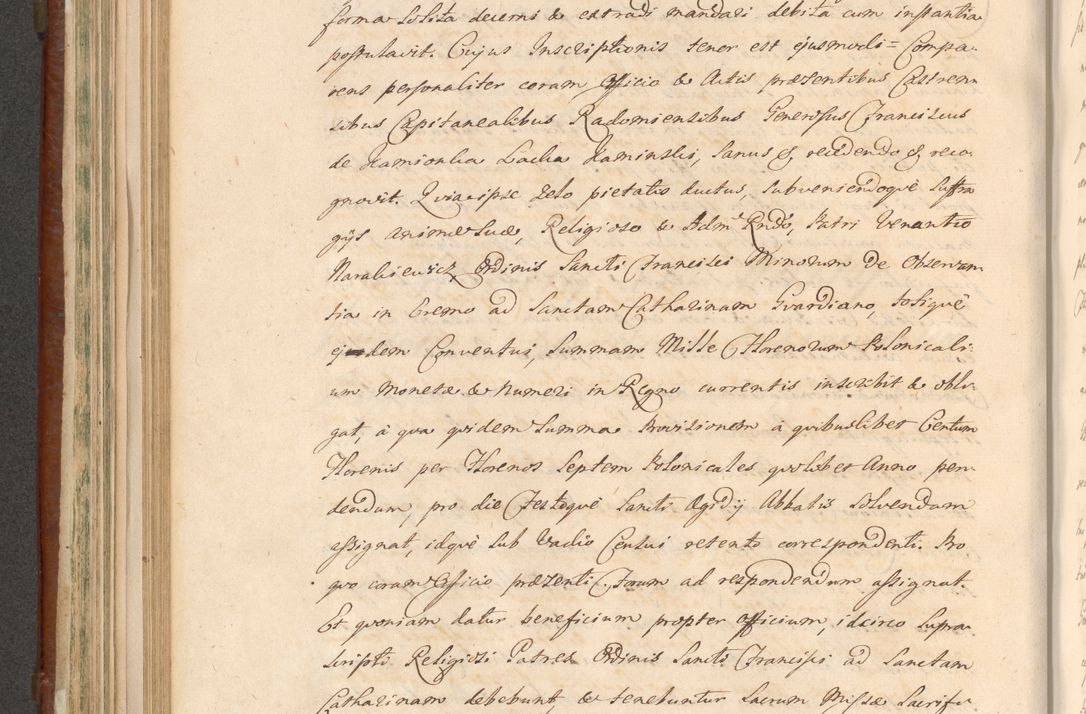 forma Solita decerni & extradi mandari debita cum instantia
postulavit. Cujus Inscriptionis tenor est ejusmodi = Compa-
rens personaliter coram Officio & Actis præsentibus Castren
sibus Capitanealibus Radomiensibus Generosus Franciscus
de Kamionka Lacka Kaminski, Sanus &, recedendo &, reco-
gnovit. Quia ipse Zelo pietatis ductus, Subveniendoquè Suffra
gÿs animæ Suæ, Religioso & Adm Rndo, Patri Venantio
Narakiewicz Ordinis Sancti Francisci Minorum De Observan
tia in Eremo ad Sanctam Catharinam Gvardiano, totiquè
ejdem Conventui, Summam Mille Florenorum Polonicali-
um Monetæ & Numeri in Regno currentis inscribit & obli-
gat, à qua quidem Summa Provisionem à quibuslibet Centum
Florenis per Florenos Septem Polonicales quolibet Anno pen-
dendum, pro die Festoquè Sancti Ægidÿ Abbatis Solvendam
assignat, idquè Sub Vadio Censui retento correspondenti. Pro
quo coram Officio præsenti Forum ad respondendum assignat.
Et quoniam datur beneficium propter officium, idcirco Supra-
Scripti Religiosi Patres Ordinis Sancti Francisci ad Sanctam
Catharinam debebunt, & tenebuntur Sacrum Missæ Sacrifi-